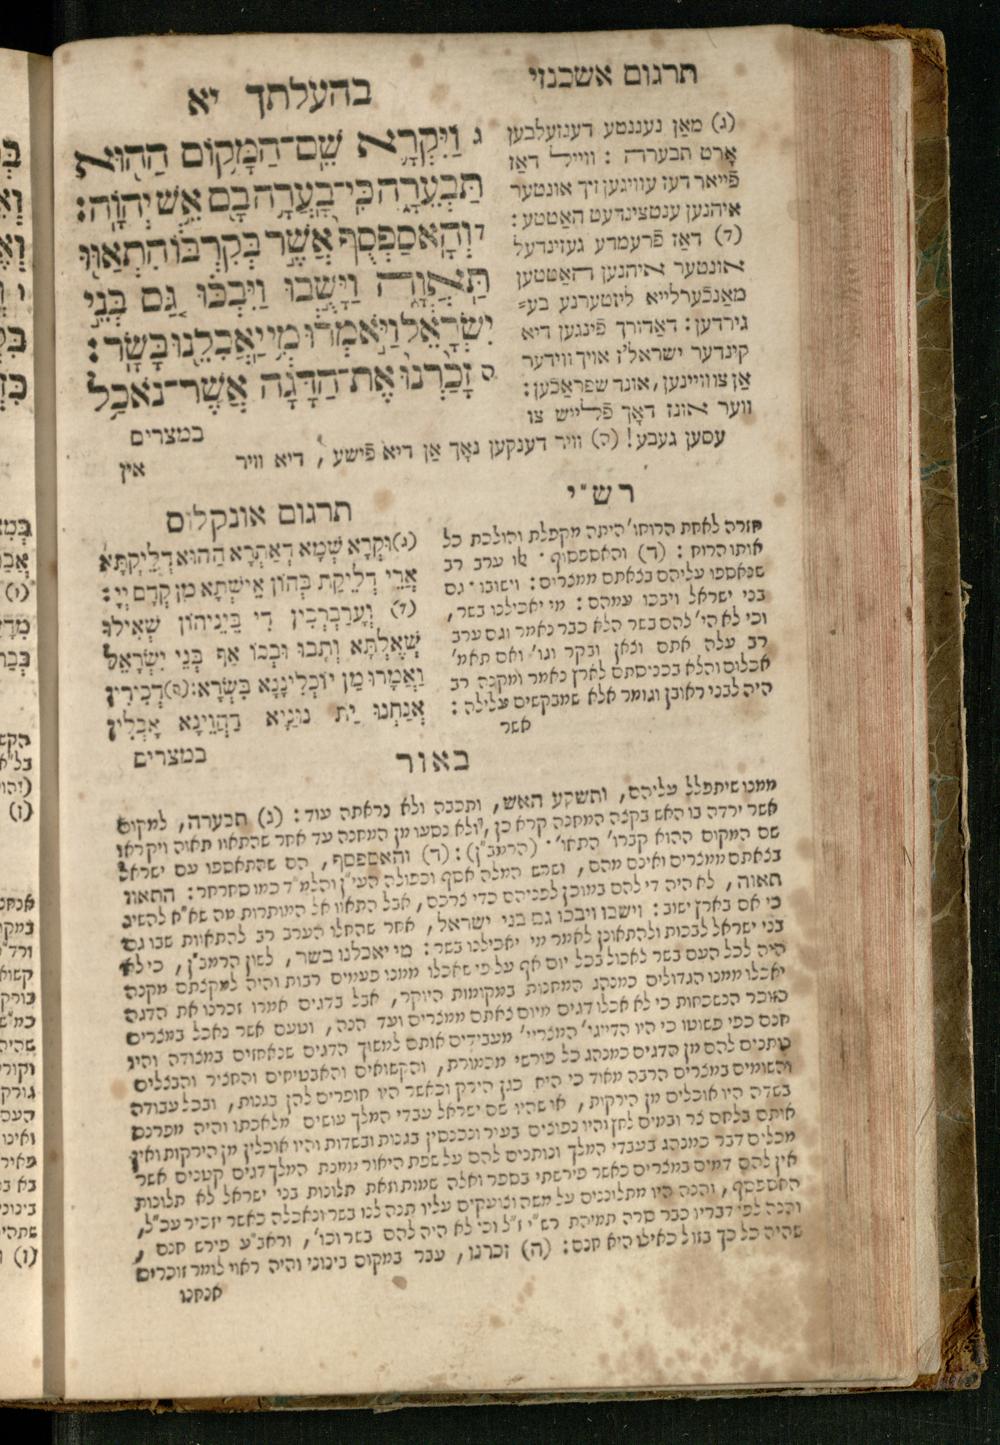 תרגום אשכנזי
בהעלתך יא
ג וַיִּקְרָא שֵׁם־הַמָּקוֹם הַהוּא
תַּבְעֵרָה כִּי־בָעֲרָה בָם אֵשׁ יְהֹוָה׃
ד וְהָאסַפְסֻף אֲשֶׁר בְּקִרְבּוֹ הִתְאַוּוּ
תַּאֲוָה וַיָּשֻׁבוּ וַיִּבְכּוּ גַּם בְּנֵי
יִשְׂרָאֵל וַיֹּאמְרוּ מִי יַאֲכִלֵנוּ בָּשָׂר׃
ה זָכַרְנוּ אֶת־הַדָּגָה אֲשֶׁר־נֹאכַל
במצרים
(ג) מאַן נעננטע דענזעלבען
אָרט תבערה : ווייל דאז
פֿייאר דעז עוויגען זיך אונטער
איהנען ענטצינדעט האַטטע :
(ד) דאז פֿרעמדע געזינדעל
אונטער איהנען האַטטען
מאַנכֿערלייא ליסטערנע בע=
גירדען : דאַדורך פֿינגען דיא
קינדער ישראל'ז אויך ווידער
אָן צו וויינען, אונד שפראַכֿען :
ווער אונז דאָך פֿלייש צו
עסען געבע! (ה) וויר דענקען נאָך אָן דיא פֿישע, דיא וויר
אין
רש"י
חזרה לאחת הרוחו' היתה מקפלת והולכת כל
אותו הרוח : (ד) והאספסוף · אלו ערב רב
שנאספו עליהם בצאתם ממצרים : וישובו · גם
בני ישראל ויבכו עמהם : מי יאכילנו בשר,
וכי לא הי' להם בשר הלא כבר נאמר וגם ערב
רב עלה אתם וצאן ובקר וגו' ואם תאמ'
אכלום והלא בכניסתם לארץ נאמר ומקנה רב
היה לבני ראובן וגומר אלא שמבקשים עלילה :
אשר
תרגום אונקלוס
(ג) וּקְרָא שְׁמָא דְאַתְרָא הַהוּא דְלֵיקְתָּא
אֲרֵי דְלֵיקַת בְּהוֹן אֵישָׁתָא מִן קֳדָם יְיָ :
(ד) וְעַרַבְרְבִין דִי בֵינֵיהוֹן שְׁאִילוּ
שְׁאֶלְתָּא וְתָבוּ וּבְכוֹ אַף בְּנֵי יִשְׂרָאֵל
וַאֲמָרוּ מַן יוֹכְלִינָנָא בִּשְׂרָא : (ה) דְּכִירִין
אֲנַחְנוּ יַת נוּנַיָא דַהֲוֵינָא אָכְלִין
במצרים
באור
ממנו שיתפלל עליהם, ותשקע האש, ותכבה ולא נראתה עוד : (ג) תבערה, למקום
אשר ירדה בו האש בקצה המחנה קרא כן, ולא נסעו מן המחנה עד אחר שהתאוו תאוה ויקראו
שם המקום ההוא קברו' התאו' · (הרמב"ן) : (ד) והאספסף, הם שהתאספו עם ישראל
בצאתם ממצרים ואינם מהם, ושרש המלה אסף וכפולה העי"ן והלמ"ד כמו סחרחר : התאוו
תאוה, לא היה די להם במוכן לפניהם כדי צרכם, אבל התאוו אל המותרות מה שא"א להשיג
כי אם בארץ ישוב : וישבו ויבכו גם בני ישראל, אחר שהחלו הערב רב להתאוות שבו גם
בני ישראל לבכות ולהתאונן לאמר מי יאכילנו בשר : מי יאכלנו בשר, לשון הרמב"ן, כי לא
היה לכל העם בשר לאכול בכל יום אף על פי שאכלו ממנו פעמים רבות והיה למקצתם מקנה
יאכלו ממנו הגדולים כמנהג המחנות במקומות היוקר, אבל בדגים אמרו זכרנו את הדגה
כזוכר הנשכחות כי לא אכלו דגים מיום צאתם ממצרים ועד הנה, וטעם אשר נאכל במצרים
חנם כפי פשוטו כי היו הדייגי' המצריי' מעבידים אותם למשוך הדגים שנאחזים במצודה והיו
נותנים להם מן הדגים כמנהג כל פורשי מכמורת, והקשואים והאבטיחים והחציר והבצלים
והשומים במצרים הרבה מאוד כי היא כגן הירק וכאשר היו חופרים להן בגנות, ובכל עבודה
בשדה היו אוכלים מן הירקות, או שהיו שם ישראל עבדי המלך עושים מלאכתו והיה מפרנס
אותם בלחם צר ובמים לחץ והיו נפוצים בעיר ונכנסין בגנות ובשדות והיו אוכלין מן הירקות ואין
מכלים דבר כמנהג בעבדי המלך ונותנים להם על שפת היאור ממנת המלך דגים קטנים אשר
אין להם דמים במצרים כאשר פירשתי בספר ואלה שמות וזאת תלונות בני ישראל לא תלונות
האספסף, והנה היו מתלוננים על משה וצועקים עליו תנה לנו בשר ונאכלה כאשר יזכיר עכ"ל,
והנה לפי דבריו כבר סרה תמיהת רש"י ז"ל וכי לא היה להם בשר וכו', וראב"ע פירש חנם,
שהיה כל כך בזול כאילו היא חנם : (ה) זכרנו, עבר במקום בינוני והיה ראוי לומר זוכרים
אנחנו